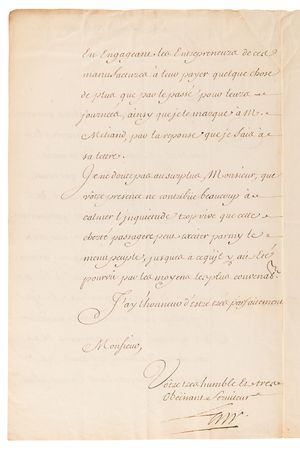 En Engageant les Entrepreneurs de ces
manufactures à leur payer quelque chose
de plus que par le passé pour leurs
journées, ainsy que je le marque à M.
par la reponse que je fais à
sa lettre.
Je ne doute pas au surplus, Monsieur, que
vôtre presence ne contribüe beaucoup à
calmer l'inquietude trop vive que cette
cherté passagere peut exciter parmy le
menu peuple, jusques à ce qu'il y ait été
pourvû par les moyens les plus convenab.
J'ay l'honneur d'estre tres parfaitement
Monsieur,
Vôtre tres humble et tres
Obeissant Serviteur